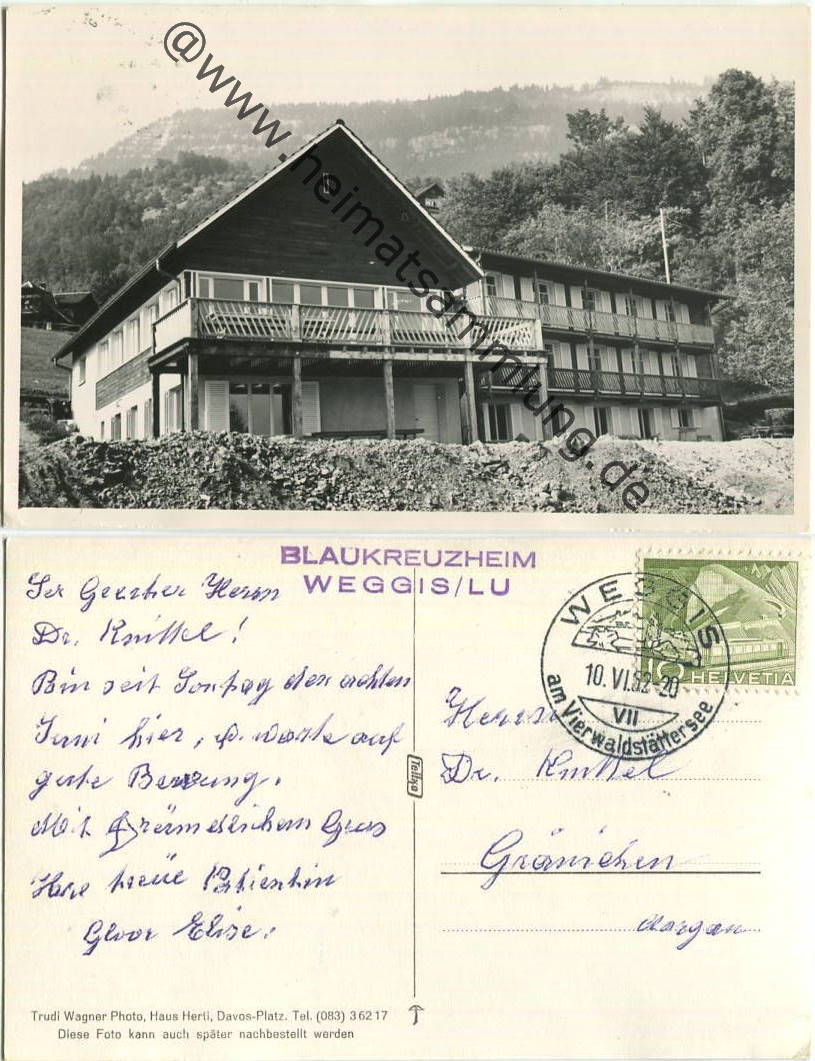 @www.heimatsammlung.de
BLAUKREUZHEIM
WEGGIS/LU
Ser Geerter Herrn
Dr. Knittel!
Bin seit Sontag den achten
Juni hier, u. warte auf
gute Besserung.
Mit freundlichem Grus
Ihre treue Patientin
Gloor Elise.
Trudi Wagner Photo, Haus Herti, Davos-Platz. Tel. (083) 3 62 17
Diese Foto kann auch später nachbestellt werden
Tellko
WEGGIS
10. VI. 52-20
VII
am Vierwaldstättersee
10 HELVETIA
Herrn
Dr. Knittel
Gränichen
Aargau